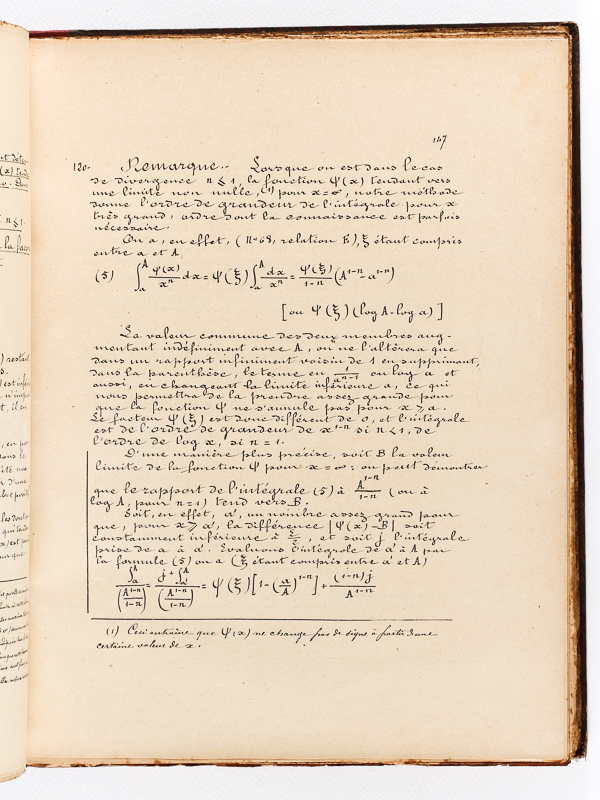 147
120. Remarque._ Lorsque on est dans le cas
de divergence n ≤ 1, la fonction ψ(x) tendant vers
une limite non nulle, (1) pour x = ∞, notre méthode
donne l'ordre de grandeur de l'intégrale pour x
très grand, ordre dont la connaissance est parfois
nécessaire.
On a, en effet, (N° 68, relation E), ξ étant compris
entre a et A
(5) ∫_a^A ψ(x)/x^n dx = ψ(ξ) ∫_a^A dx/x^n = ψ(ξ)/(1-n) (A^{1-n} - a^{1-n})
[ou ψ(ξ) (log A - log a)]
La valeur commune des deux membres aug-
mentant indéfiniment avec A, on ne l'altérera que
dans un rapport infiniment voisin de 1 en supprimant,
dans la parenthèse, le terme en 1/a^{n-1} ou log a et
aussi, en changeant la limite inférieure a, ce qui
nous permettra de la prendre assez grande pour
que la fonction ψ ne s'annule pas pour x > a.
Le facteur ψ(ξ) est donc différent de 0, et l'intégrale
est de l'ordre de grandeur de x^{1-n} si n < 1, de
l'ordre de log x, si n = 1.
D'une manière plus précise, soit B la valeur
limite de la fonction ψ pour x = ∞: on peut démontrer
que le rapport de l'intégrale (5) à A^{1-n}/(1-n) (ou à
log A, pour n = 1) tend vers B.
Soit, en effet, a', un nombre assez grand pour
que, pour x ≥ a', la différence |ψ(x) - B| soit
constamment inférieure à ε/2, et soit j l'intégrale
prise de a à a'. Évaluons l'intégrale de a' à A par
la formule (5) on a (ξ étant compris entre a' et A)
∫_a^A/(A^{1-n}/(1-n)) = (j + ∫_{a'}^A)/(A^{1-n}/(1-n)) = ψ(ξ)[1 - (a/A)^{1-n}] + (1-n)j/A^{1-n}
(1) Ceci entraîne que ψ(x) ne change pas de signe à partir d'une
certaine valeur de x.